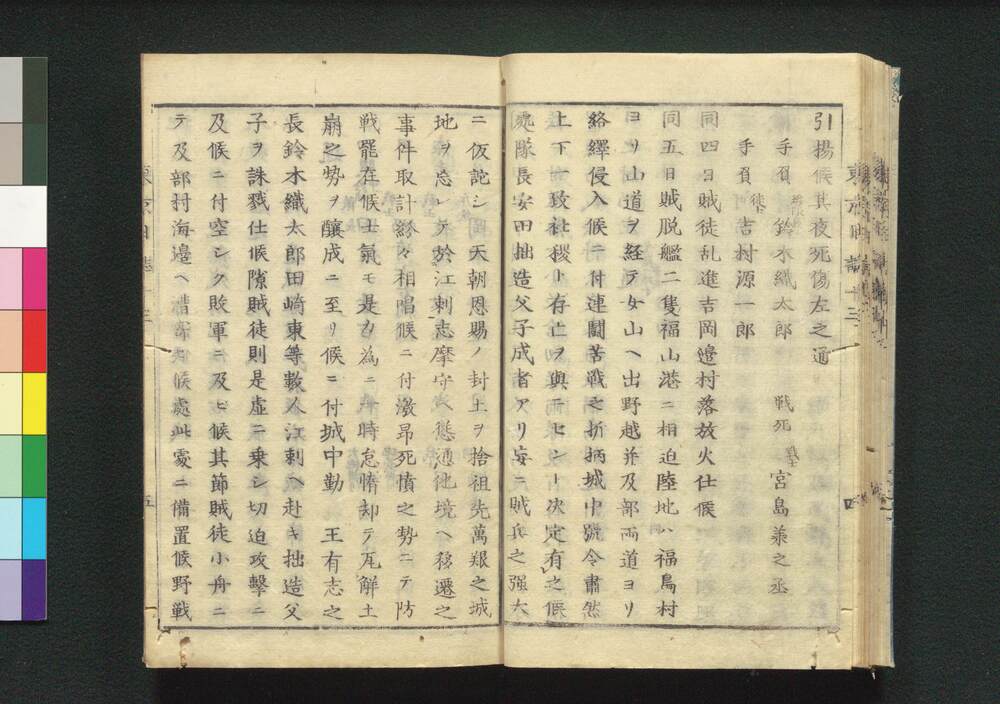 引揚候其夜死傷左之通
手負 鈴木織太郎 戦死 宮島兼之丞
手負 徒士 吉村源一郎
同四日賊徒乱進吉岡邊村落放火仕候
同五日賊脱艦二隻福山港ニ相迫陸地ハ福島村
ヨリ山道ヲ経テ女山ヘ出野越并及部両道ヨリ
絡繹侵入候ニ付連闘苦戦之折柄城中號令肅然
上下一致社稷ト存亡ヲ與ニセント決定有之候
處隊長安田拙造父子成者アリ妄ニ賊兵之强大
ニ仮詫シ 天朝恩賜ノ封土ヲ捨祖先萬艱之城
地ヲ忘レテ於江刺志摩守ヘ慫慂他境ヘ移遷之
事件取計終々相唱候ニ付激昂死憤之勢ニテ防
戦罷在候士氣モ是カ為ニ一時怠惰却テ瓦解土
崩之勢ヲ釀成ニ至リ候ニ付城中勤 王有志之
長鈴木織太郎田崎東等數人江刺ヘ赴キ拙造父
子ヲ誅戮仕候隙賊徒則是虚ニ乗シ切迫攻擊ニ
及候ニ付空シク敗軍ニ及ヒ候其節賊徒小舟ニ
テ及部村海邊ヘ漕寄候處此處ニ備置候野戦
東京日誌十三
四
五